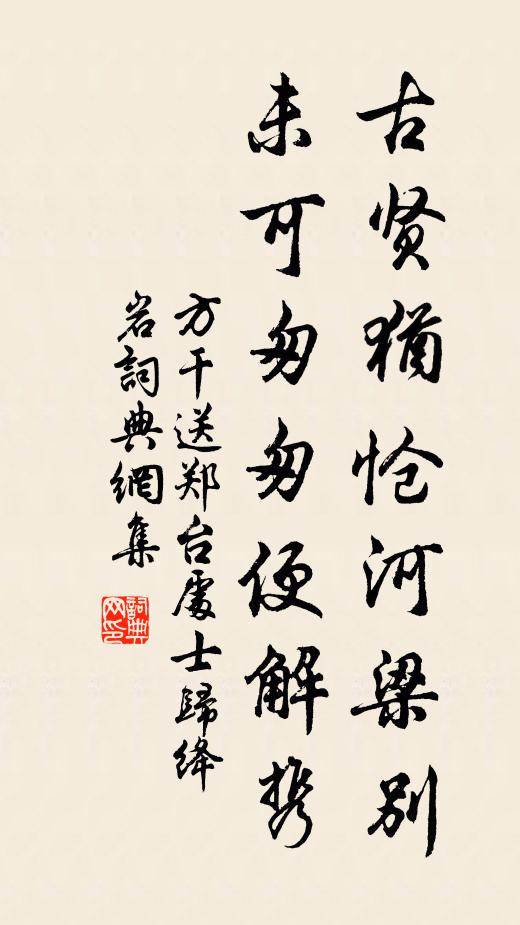 古贤猶怆河梁别
未可匆匆便解携
方干送郑台處士歸绛
岩詞典網集
詞典
网印